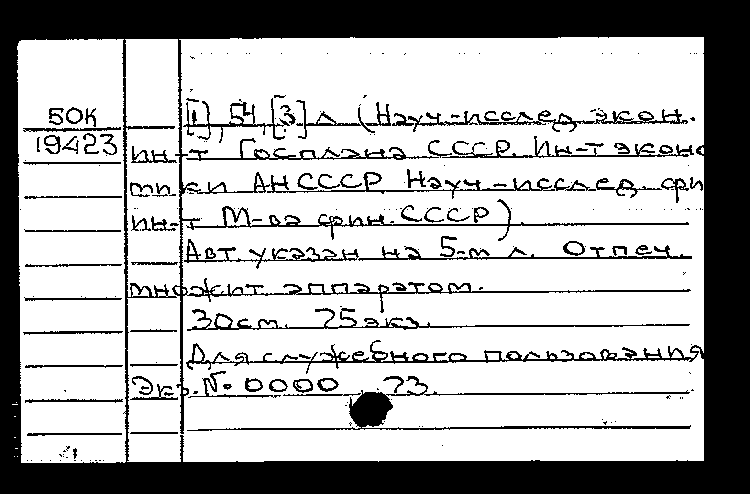 50К
19423
[1], 54, [3] л (Науч-исслед. экон.
ин-т Госплана СССР. Ин-т эконо
тики АН СССР. Науч-исслед. фин
ин-т М-ва фин. СССР).
Авт. указан на 5-м л. Отпеч.
множит. аппаратом.
30см. 75экз.
Для служебного пользования
Экз. № 0000 . 73.